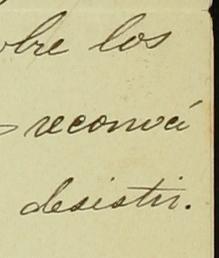 obre los
reconocí
desistir.